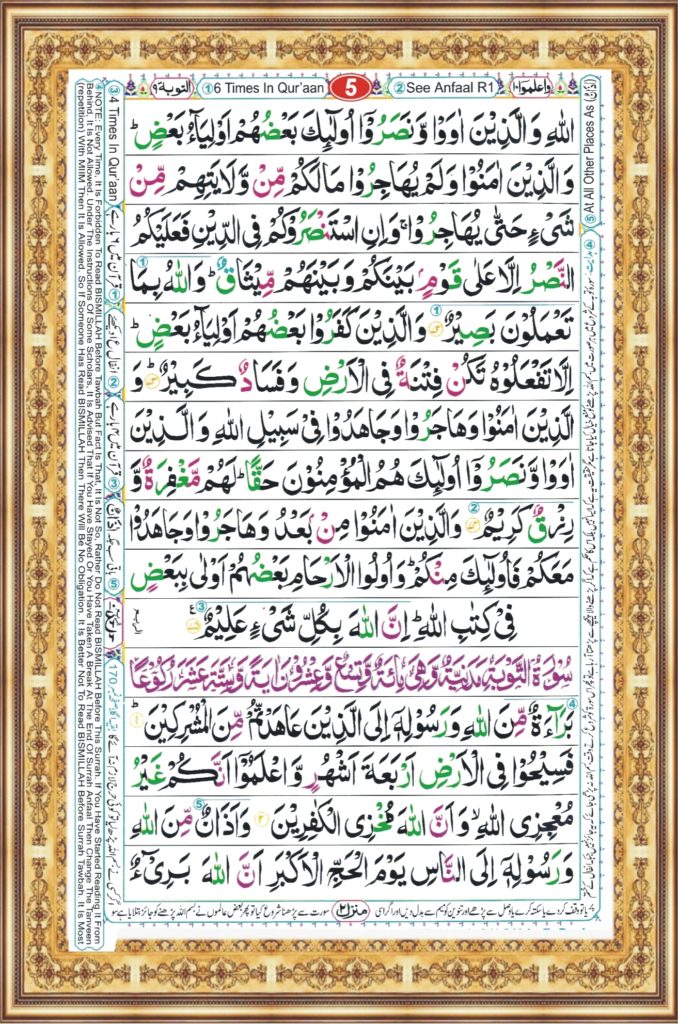 التوبة ٩
① 6 Times In Qur'aan
5
② See Anfaal R1
واعلموا ١٠
اللهِ وَالَّذِيْنَ اٰوَوْا وَّنَصَرُوْٓا اُولٰٓئِكَ بَعْضُهُمْ اَوْلِيَآءُ بَعْضٍ ؕ
وَالَّذِيْنَ اٰمَنُوْا وَلَمْ يُهَاجِرُوْا مَا لَكُمْ مِّنْ وَّلَايَتِهِمْ مِّنْ
شَىْءٍ حَتّٰى يُهَاجِرُوْا ۚ وَاِنِ اسْتَنْصَرُوْكُمْ فِى الدِّيْنِ فَعَلَيْكُمُ
النَّصْرُ اِلَّا عَلٰى قَوْمٍۭ بَيْنَكُمْ وَبَيْنَهُمْ مِّيْثَاقٌ ؕ وَاللهُ بِمَا ①
تَعْمَلُوْنَ بَصِيْرٌ ① وَالَّذِيْنَ كَفَرُوْا بَعْضُهُمْ اَوْلِيَآءُ بَعْضٍ ؕ
اِلَّا تَفْعَلُوْهُ تَكُنْ فِتْنَةٌ فِى الْاَرْضِ وَفَسَادٌ كَبِيْرٌ وَ
الَّذِيْنَ اٰمَنُوْا وَهَاجَرُوْا وَجَاهَدُوْا فِىْ سَبِيْلِ اللهِ وَالَّذِيْنَ
اٰوَوْا وَّنَصَرُوْٓا اُولٰٓئِكَ هُمُ الْمُؤْمِنُوْنَ حَقًّا ؕ لَهُمْ مَّغْفِرَةٌ وَّ
رِزْقٌ كَرِيْمٌ ② وَالَّذِيْنَ اٰمَنُوْا مِنْۢ بَعْدُ وَهَاجَرُوْا وَجَاهَدُوْا
مَعَكُمْ فَاُولٰٓئِكَ مِنْكُمْ ؕ وَاُولُوا الْاَرْحَامِ بَعْضُهُمْ اَوْلٰى بِبَعْضٍ
فِىْ كِتٰبِ اللهِ ؕ اِنَّ اللهَ بِكُلِّ شَىْءٍ عَلِيْمٌ ③
سُوْرَةُ التَّوْبَةِ مَدَنِيَّةٌ وَّهِىَ مِائَةٌ وَّتِسْعٌ وَّعِشْرُوْنَ اٰيَةً وَّسِتَّةَ عَشَرَ رُكُوْعًا
④ بَرَآءَةٌ مِّنَ اللهِ وَرَسُوْلِهٖٓ اِلَى الَّذِيْنَ عَاهَدْتُّمْ مِّنَ الْمُشْرِكِيْنَ
فَسِيْحُوْا فِى الْاَرْضِ اَرْبَعَةَ اَشْهُرٍ وَّاعْلَمُوْٓا اَنَّكُمْ غَيْرُ
مُعْجِزِى اللهِ ۙ وَاَنَّ اللهَ مُخْزِى الْكٰفِرِيْنَ ٢ وَاَذَانٌ ⑤ مِّنَ اللهِ
وَرَسُوْلِهٖٓ اِلَى النَّاسِ يَوْمَ الْحَجِّ الْاَكْبَرِ اَنَّ اللهَ بَرِىْٓءٌ
منزل ٢
⑤ At All Other Places As (اَذَانٌ)
③ 4 Times In Qur'aan
④ NOTE: Every Time, It Is Forbidden To Read BISMILLAH Before Tawbah But Fact Is That, It Is Not So, Rather Do Not Read BISMILLAH Before This Surrah. If You Have Started Reading It From
Behind, It Is Not Allowed, Under The Instructions Of Some Scholars, It Is Advised That If You Have Stayed Or You Have Taken A Break At The End Of Surrah Anfaal Then Change The Tanveen
(repetition) With MIIM Then It Is Allowed. So If Someone Has Read BISMILLAH Then There Will Be No Obligation. It Is Better Not To Read BISMILLAH Before Surrah Tawbah. It Is Most